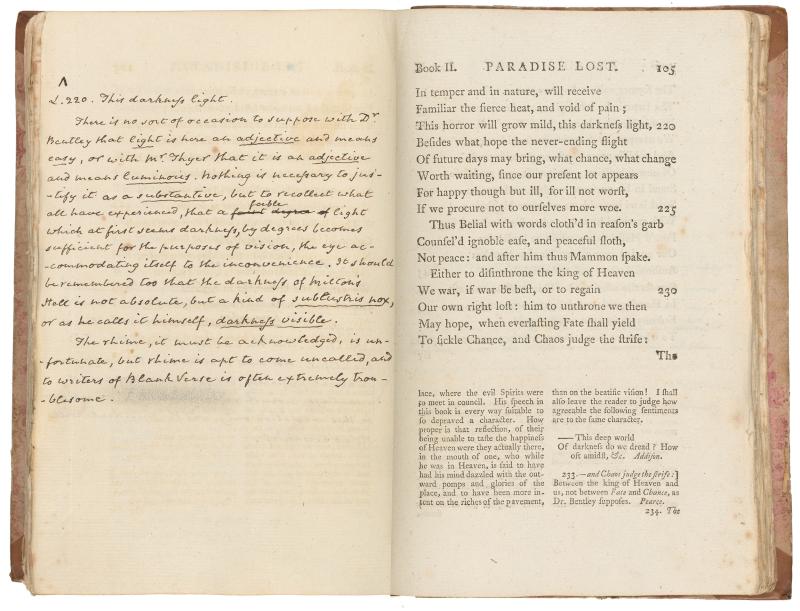 ^
L.220. This darkneſs light.
There is no sort of occasion to suppose with Dr.
Bentley that light is here an adjective and means
easy, or with Mr. Thyer that it is an adjective
and means luminous. Nothing is necessary to jus-
-tify it as a substantive, but to recollect what
all have experienced, that a faint degree of feeble light
which at first seems darkneſs, by degrees becomes
sufficient for the purposes of vision, the eye ac-
-commodating itself to the inconvenience. It should
be remembered too that the darkneſs of Milton's
Hell is not absolute, but a kind of sublustris nox,
or as he calls it himself, darkneſs visible.
The rhime, it must be acknowledged, is un-
-fortunate, but rhime is apt to come uncalled, and
to writers of Blank Verse is often extremely trou-
-blesome.
Book II. PARADISE LOST. 105
In temper and in nature, will receive
Familiar the fierce heat, and void of pain;
This horror will grow mild, this darkneſs light, 220
Beſides what hope the never-ending flight
Of future days may bring, what chance, what change
Worth waiting, ſince our preſent lot appears
For happy though but ill, for ill not worſt,
If we procure not to ourſelves more woe. 225
Thus Belial with words cloth'd in reaſon's garb
Counſel'd ignoble eaſe, and peaceful ſloth,
Not peace: and after him thus Mammon ſpake.
Either to diſinthrone the king of Heaven
We war, if war be beſt, or to regain 230
Our own right loſt: him to unthrone we then
May hope, when everlaſting Fate ſhall yield
To fickle Chance, and Chaos judge the ſtrife:
The
lace, where the evil Spirits were
to meet in council. His ſpeech in
this book is every way ſuitable to
ſo depraved a character. How
proper is that reflection, of their
being unable to taſte the happineſs
of Heaven were they actually there,
in the mouth of one, who while
he was in Heaven, is ſaid to have
had his mind dazzled with the out-
ward pomps and glories of the
place, and to have been more in-
tent on the riches of the pavement,
than on the beatific viſion! I ſhall
alſo leave the reader to judge how
agreeable the following ſentiments
are to the ſame character.
—— This deep world
Of darkneſs do we dread? How
oft amidſt, &c. Addiſon.
233. —and Chaos judge the ſtrife:]
Between the king of Heaven and
us, not between Fate and Chance, as
Dr. Bentley ſuppoſes. Pearce.
234. The